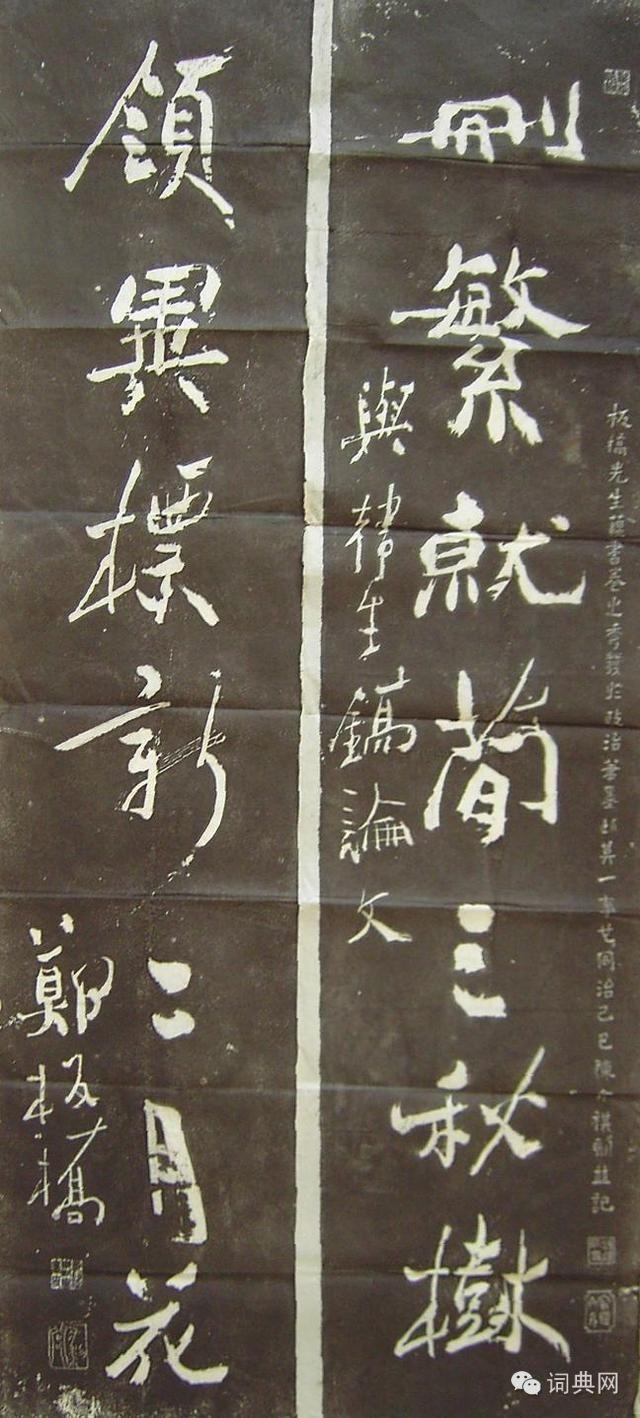 板橋先生蘊書卷之秀發於政治筆墨其一事也同治己巳陳介祺並記
刪繁就簡三秋樹
與韓生鎬論文
領異標新二月花
鄭板橋
词典网